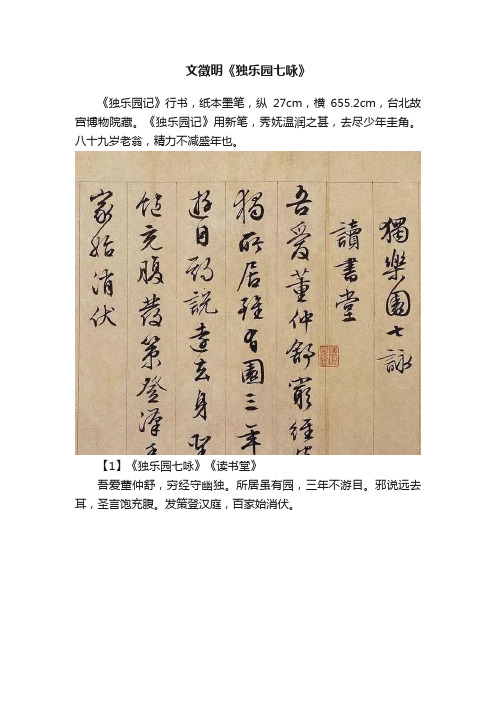 文徵明《独乐园七咏》
《独乐园记》行书，纸本墨笔，纵27cm，横655.2cm，台北故
宫博物院藏。《独乐园记》用新笔，秀妩温润之甚，去尽少年圭角。
八十九岁老翁，精力不减盛年也。
獨樂園七詠
讀書堂
吾愛董仲舒窮經
獨所居雖有園三年
遊目邪說遠去耳
飽充腹發策登漢
家始消伏
【1】《独乐园七咏》《读书堂》
吾爱董仲舒，穷经守幽独。所居虽有园，三年不游目。邪说远去
耳，圣言饱充腹。发策登汉庭，百家始消伏。